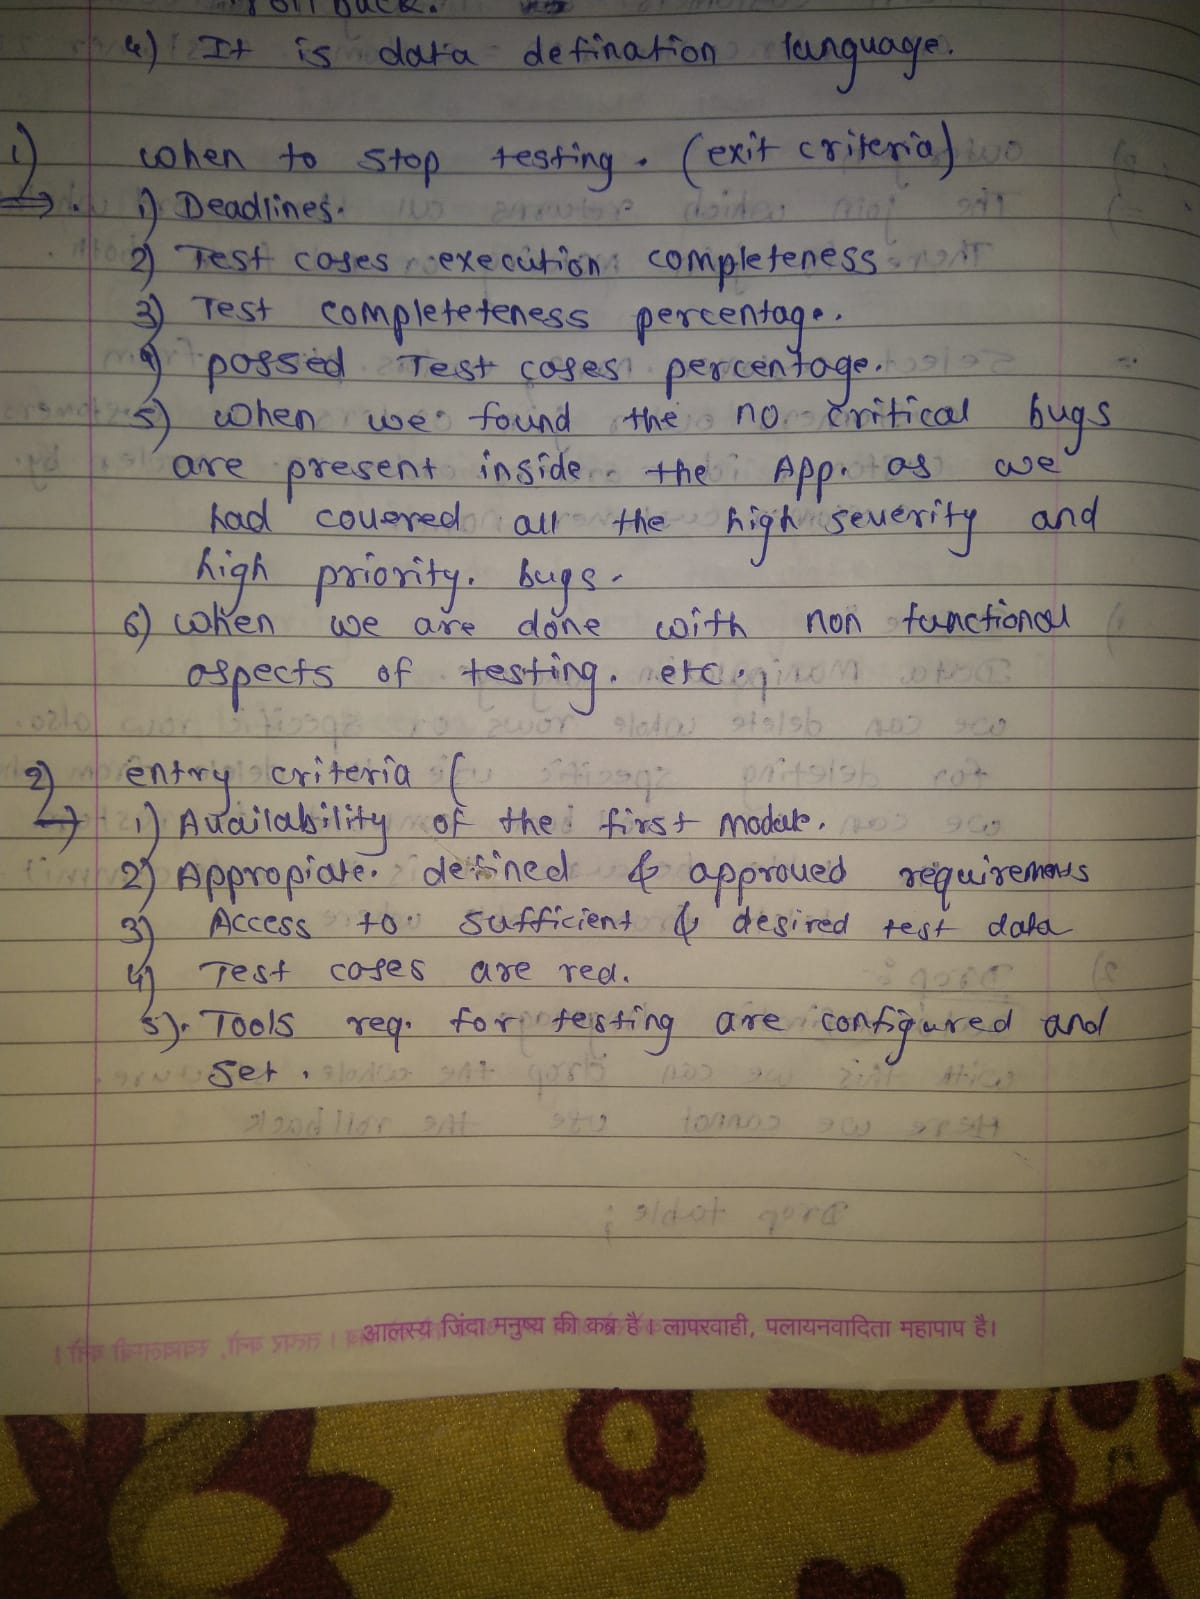 rollback.
4) It is data defination language.
1) when to stop testing. (exit criteria)
⇒. 1) Deadlines.
2) Test cases execution completeness
3) Test completeteness percentage.
4) passed Test cases percentage.
5) when we found the no critical bugs
are present inside the App. as we
had covered all the high severity and
high priority. bugs.
6) when we are done with non functional
aspects of testing. etc.
2) entry criteria (
→ 1) Availability of the first module.
2) Appropiate. defined & approved requirements
3) Access to sufficient & desired test data
4) Test cases are red.
5). Tools req. for testing are configured and
set.
आलस्य जिंदा मनुष्य की कब्र है। लापरवाही, पलायनवादिता महापाप है।